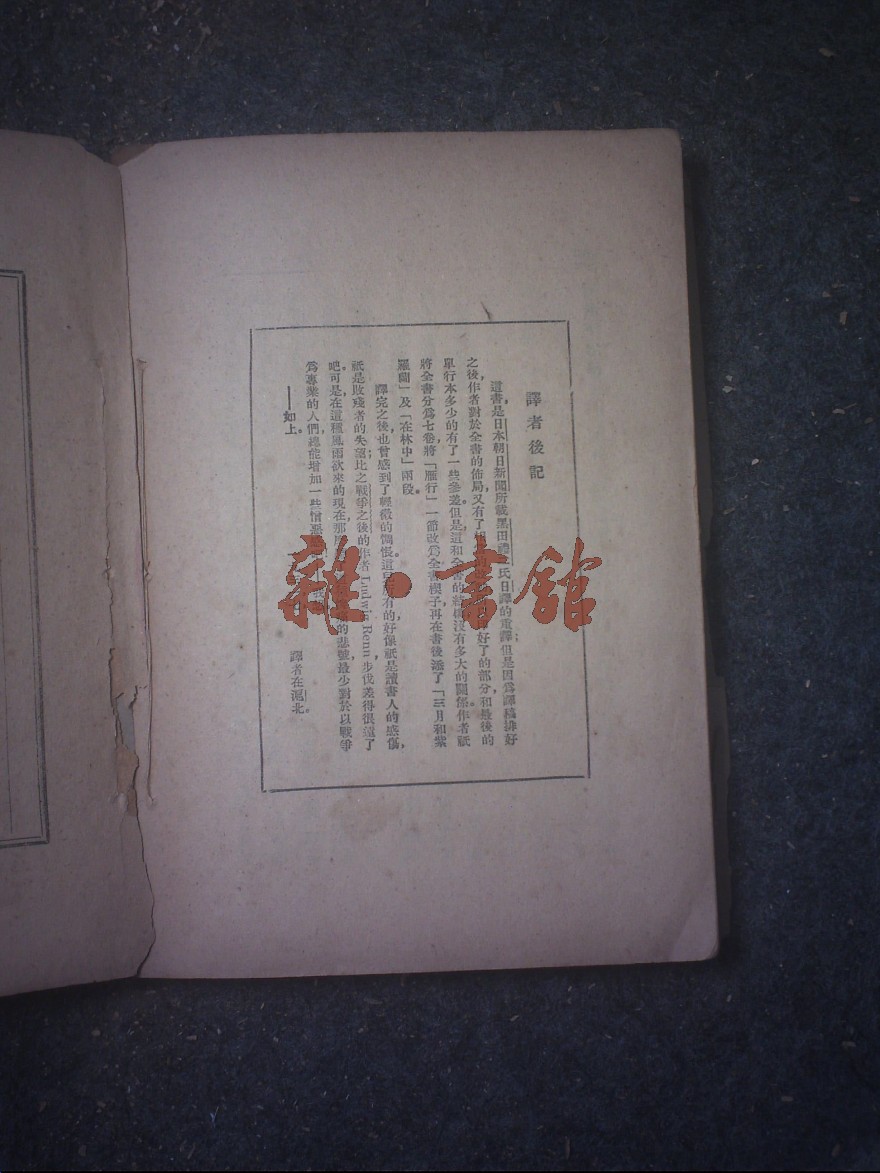 譯者後記
這書,是日本朝日新聞所載黑田禮二氏日譯的重譯;但是因爲譯稿排好
之後,作者對於全書的佈局,又有了好了的部分,和最後的
單行本多少的有了一些參差。但是,這和全書的結構沒有多大的關係。作者祇
將全書分爲七卷,將「雁行」一節改爲全書楔子,再在書後添了「三月和紫
羅蘭」及「在林中」兩段。
譯完之後,也曾感到了輕微的惆悵,這兒所有的,好像祇是讀書人的感傷,
祇是敗殘者的失望;比之戰爭之後的作者Ludwig Renn,步伐差得很遠了
吧。可是,在這種風雨欲來的現在,那的悲號,最少對於以戰爭
爲專業的人們,總能增加一些憎惡
——如上。
譯者在滬北。
雜·書館